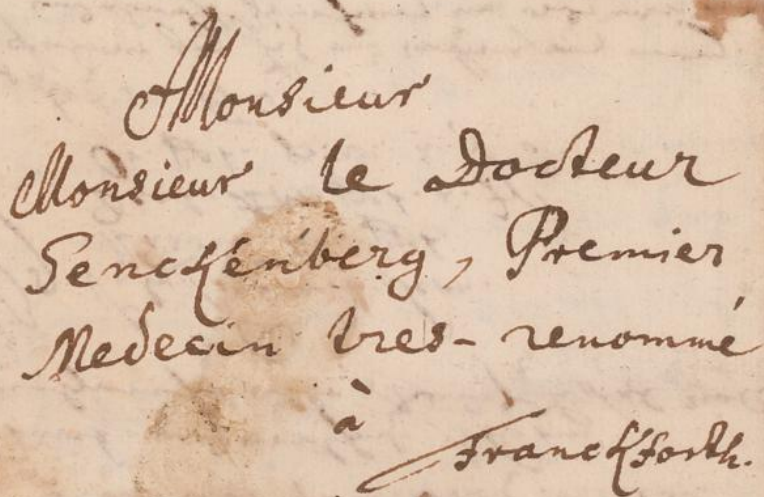 Monsieur
Monsieur le Docteur
Senckenberg, Premier
Medecin tres-renommé
à
Franckforth.